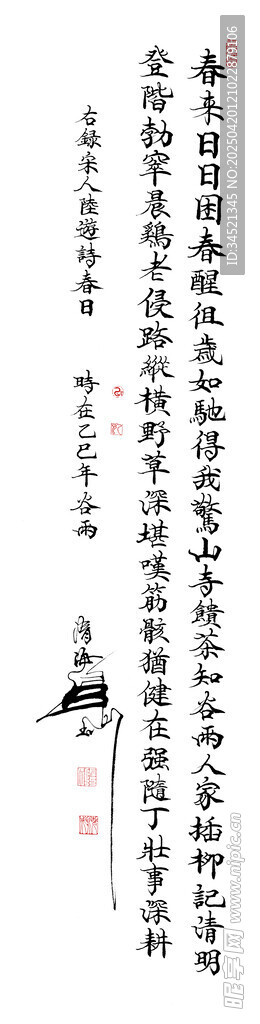 春来日日困春醒徂歲如馳得我驚山寺饋茶知谷雨人家插柳記清明
登階勃窣晨鷄老侵路縱横野草深堪嘆筋骸猶健在强隨丁壯事深耕
右錄宋人陸遊詩春日 時在乙巳年谷雨
ID:34521345 NO:20250420121022879106
昵享网 www.nipic.cn